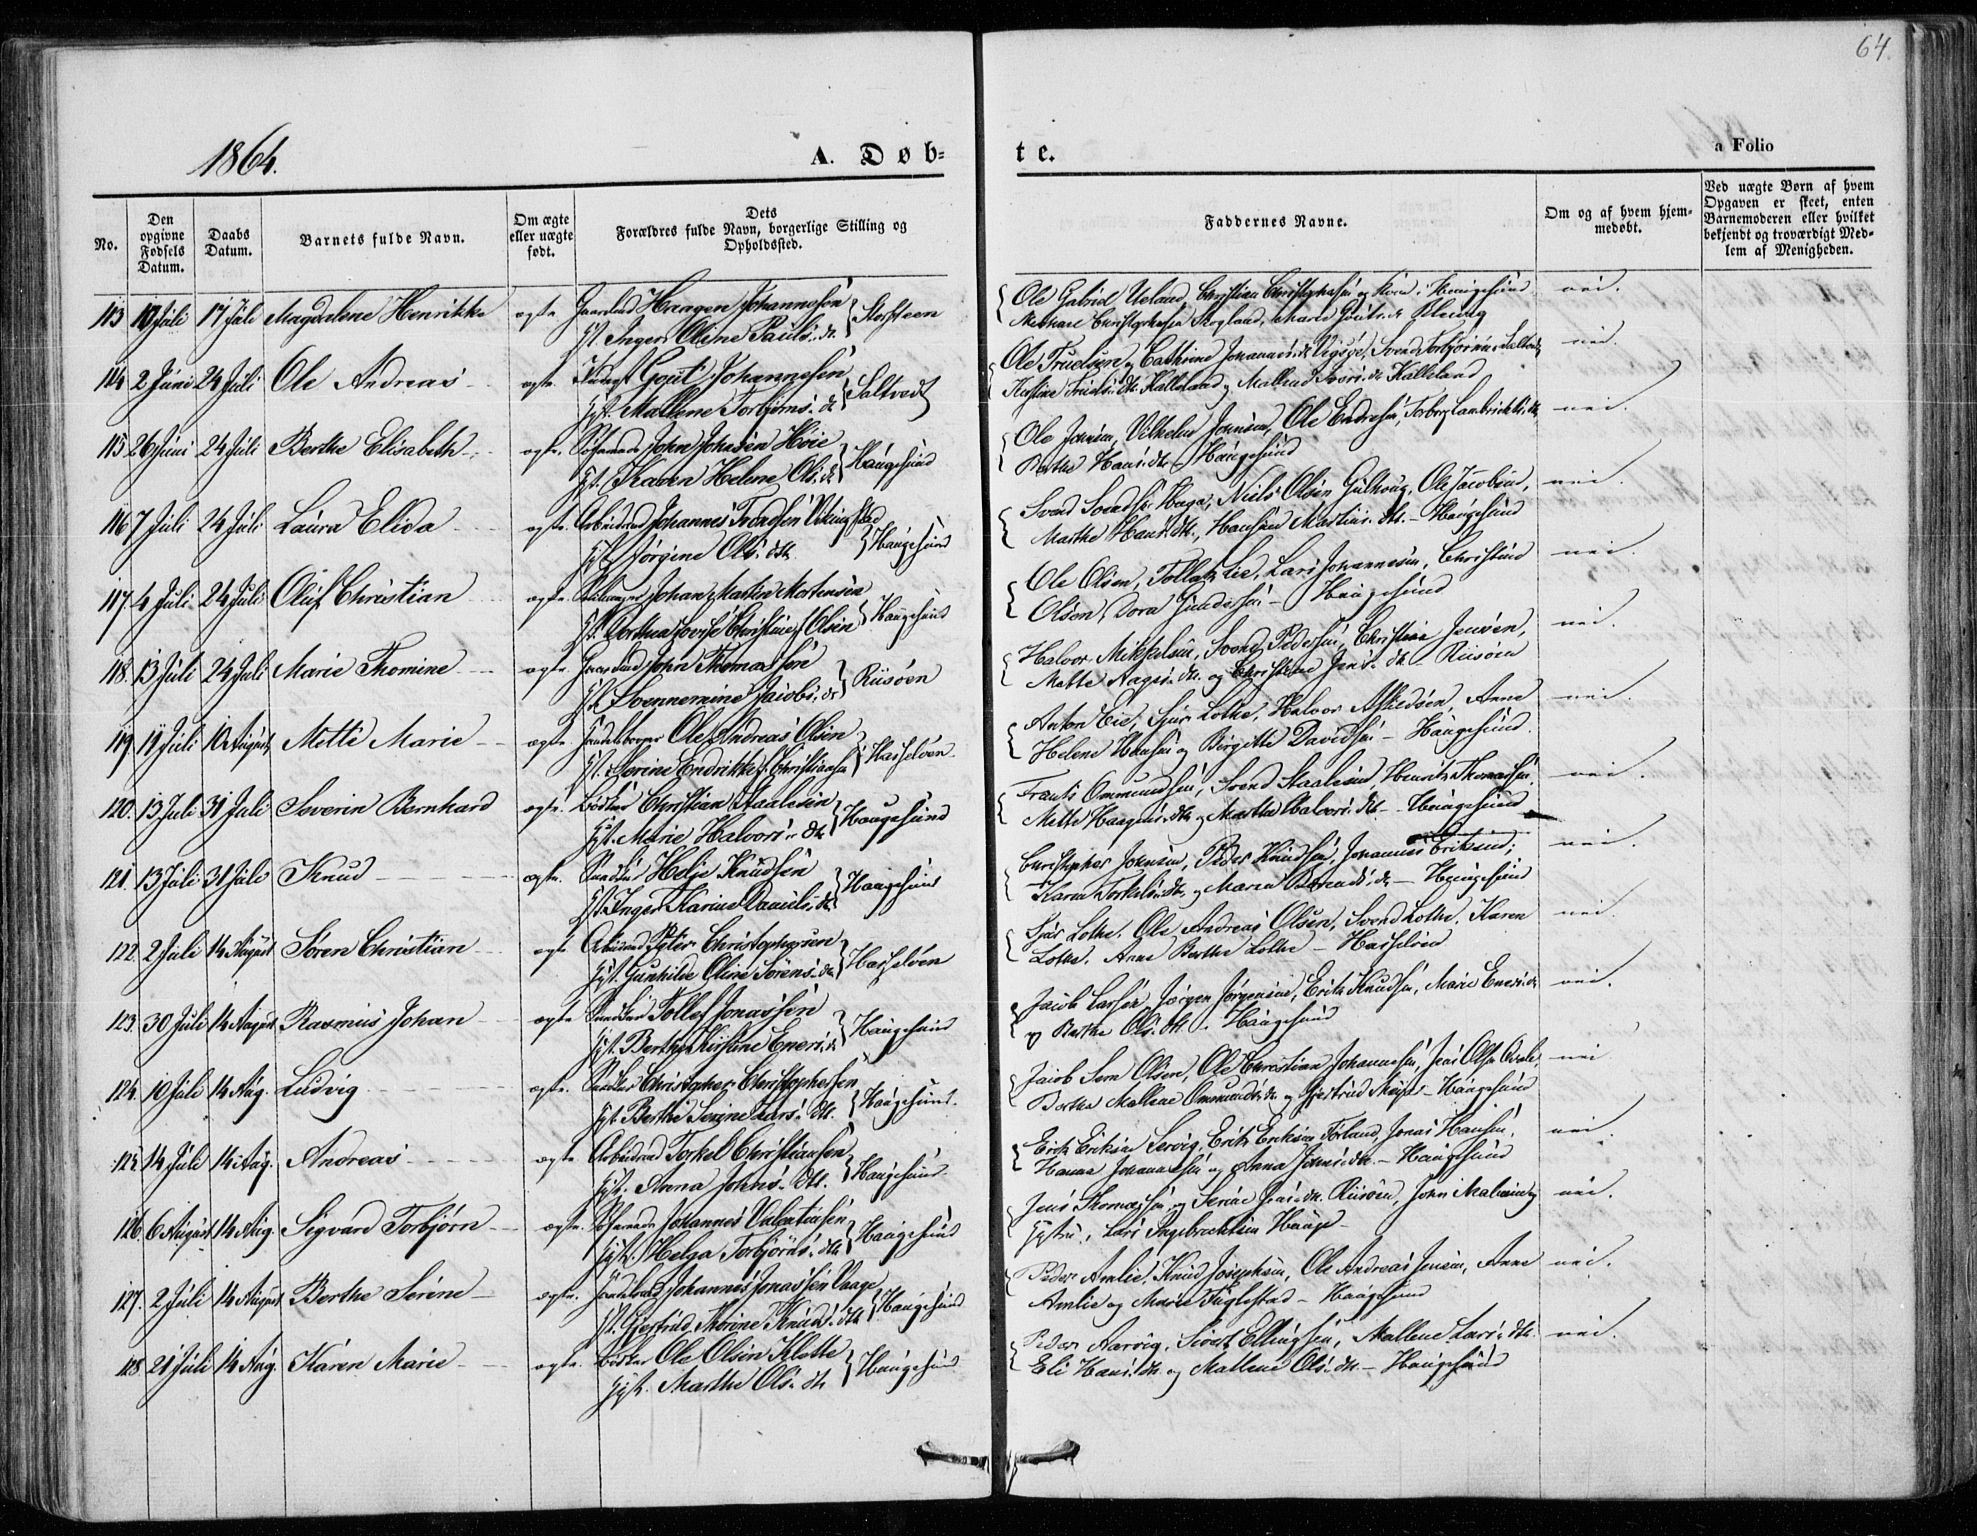 64.
1864.
A. Døb-
te.
a Folio
No.
Den opgivne Fødsels Datum.
Daabs Datum.
Barnets fulde Navn.
Om ægte eller uægte født.
Dets Forældres fulde Navn, borgerlige Stilling og Opholdssted.
Faddernes Navne.
Om og af hvem hjem-medøbt.
Ved uægte Børn af hvem Opgaven er skeet, enten Barnemoderen eller hvilket bekjendt og troværdigt Med-lem af Menigheden.
113 10 Juli 17 Juli Magdalene Henrikke ægte Haagen Johannesen
Inger Oline Pauls. dr. Storsteen
Ole Gabriel Ueland, Christian
nei.
114 2 Juni 24 Juli Ole Andreas ægte Gout Johannesen
Hst. Mallene Torbjørns. dr. Saltvedt
Ole Truelsen og Cathrine
Kalleland og Mallene Kalleland
nei.
115 26 Juni 24 Juli Berthe Elisabeth ægte. Søfarende John Johnsen Høie
Hst. Karen Helene Ols. dr. Haugesund
Ole Johnsen, Vilhelm Johnsen, Ole Endresen,
Berthe Hans. dtr. Haugesund
nei.
116 7 Juli 24 Juli Laura Elida ægte. Arbeidsmd Johannes Vikingstad
Hst. Jørgine Ols. dtr. Haugesund
Svend Svendsen Haga, Niels Olsen, Ole Jacobsen,
Marthe Hans. dtr., Martins. dtr. – Haugesund
nei.
117. 4 Juli 24 Juli Oluf Christian ægte. Johan Martin Mortensen
Hst. Dorthea Lovise Christine Olsen Haugesund
Ole Olsen, Tollak Lie, Lars Johannesen, Christine
Olsen, Dora – Haugesund
nei.
118. 13 Juli 24 Juli Marie Thomine ægte John Thomassen
Hst. Svennemine Jacobs. dr. Riisøen
Halvor Mikkelsen, Svend Pedersen, Christian Jensen,
Mette Aages. dtr. og Christine Jens. dtr. Riisøen
nei.
119. 11 Juli 10 August Mette Marie ægte Handelsborger Ole Andreas Olsen
Hst. Serine Endrikke Christiansen Hasseløen
Anton Eie, Sjur Lothe, Halvor, Anne
Helene Hansen og Birgitte Davidsen – Haugesund.
nei.
120. 13 Juli 31 Juli Severin Bernhard ægte. Bødker Christian Staalesen
Hst. Marie Halvors. dtr. Haugesund
Frants Ommundsen, Svend Staalesen, Henrik Thomassen,
Mette og Marthe Halvors. dtr. – Haugesund
nei.
121. 13 Juli 31 Juli Knud ægte. Helje Knudsen
Hst. Inger Karine Daniels. dr. Haugesund
Christopher Johnsen, Peder Knudsen, Johannes Eriksen,
Karen Torkels. dtr. og Maren – Haugesund
nei.
122. 2 Juli 14 August Søren Christian ægte Arbeidsmd Peter Christophersen
Hst. Gunhilde Oline Sørens. dr. Hasseløen
Sjur Lothe. Ole Andreas Olsen, Svend Lothe. Karen
Lothe. Anne Berthe Lothe – Hasseløen
nei.
123. 30 Juli 14 August Rasmus Johan ægte Tollef Jonassen
Hst. Berthe Kirstine Eners. dr. Haugesund
Jacob Larsen, Jørgen Jørgensen, Erik Knudsen, Marie Eners. dr.
og Berthe Ols. dtr. – Haugesund
nei.
124. 10 Juli 14 Aug. Ludvig ægte. Christopher Christophersen
Hst. Berthe Serine Lars. dtr. Haugesund.
Jacob Sem Olsen, Ole Christian Johannesen, Jens Olsen
Berthe Mallene Ommunds. dr. og Gjertrud – Haugesund
nei
125. 14 Juli 14 Aug. Andreas ægte Arbeidsmd Torkel Christiansen
Hst. Anna Johns. dtr. Haugesund
Erik Eriksen, Erik Eriksen Førland, Jonas Hansen,
Hanna Johannesen og Anna Johns. dtr. – Haugesund
nei.
126. 6 August 14 Aug. Sigvard Torbjørn ægte. Søfarende Johannes Valentinsen
Hst. Helga Torbjørns. dtr. Haugesund
Jens Thomassen og Serine Jens. dtr. Riisøen, John
Hustru, Lars Ingebrechtsen Hauge
nei.
127. 2 Juli 14 August Berthe Serine ægte. Johannes Jonassen Vaage
Hst. Gjertrud Therine Knuds. dtr. Haugesund
Peder Amlie. Knud Josephsen, Ole Andreas Jensen, Anne
Amlie og Marie Fuglestad – Haugesund
nei.
128. 21 Juli 14 Aug. Karen Marie ægte. Bødker Ole Olsen Klotte
Hst. Marthe Ols. dtr. Haugesund
Peder Aarvig, Sivert Ellingsen, Mallene Lars. dtr.
Eli Hans. dtr. og Mallene Ols. dtr. – Haugesund
nei.